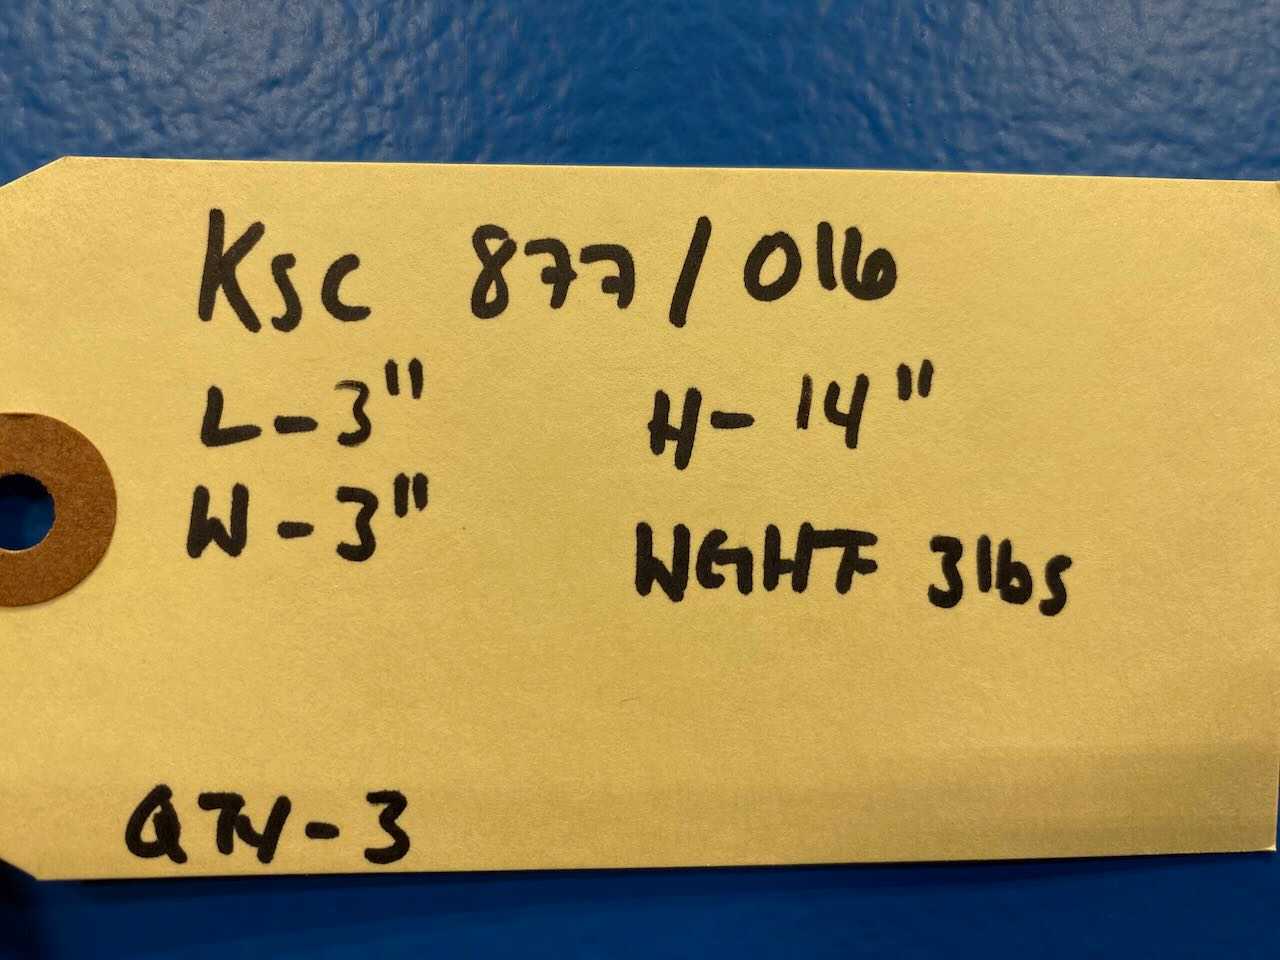 KSC 877/016
L-3" H-14"
W-3" WGHT 3lbs
QTY-3